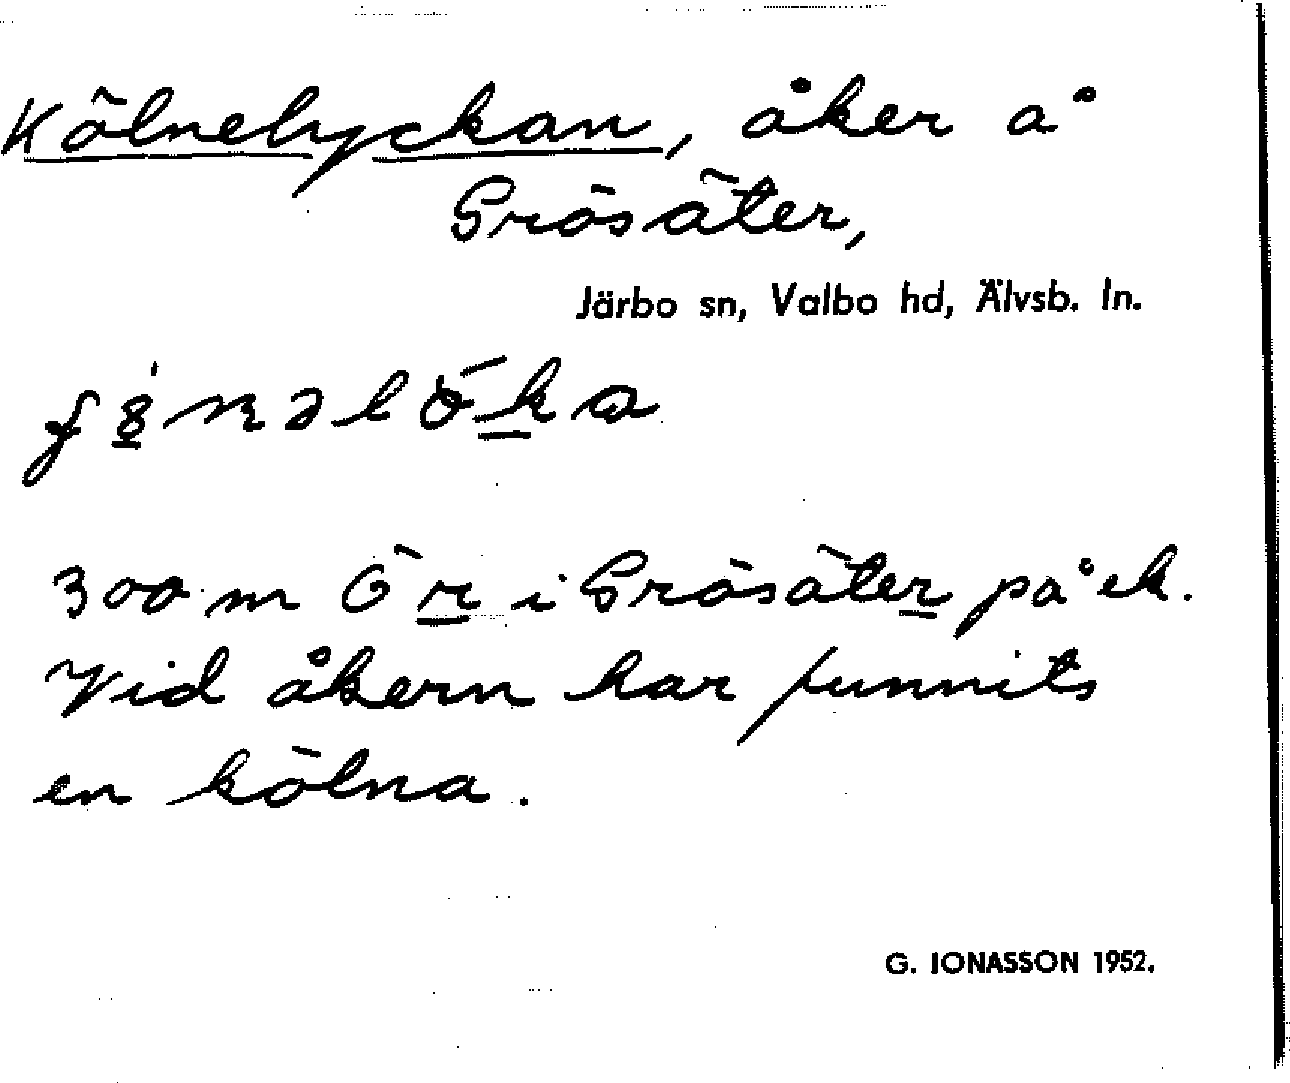 Kölnelyckan, åker å
Grösäter,
Järbo sn, Valbo hd, Älvsb. ln.
300 m Ö r i Grösäter på ek.
Vid åkern har funnits
en kölna.
G. IONASSON 1952.